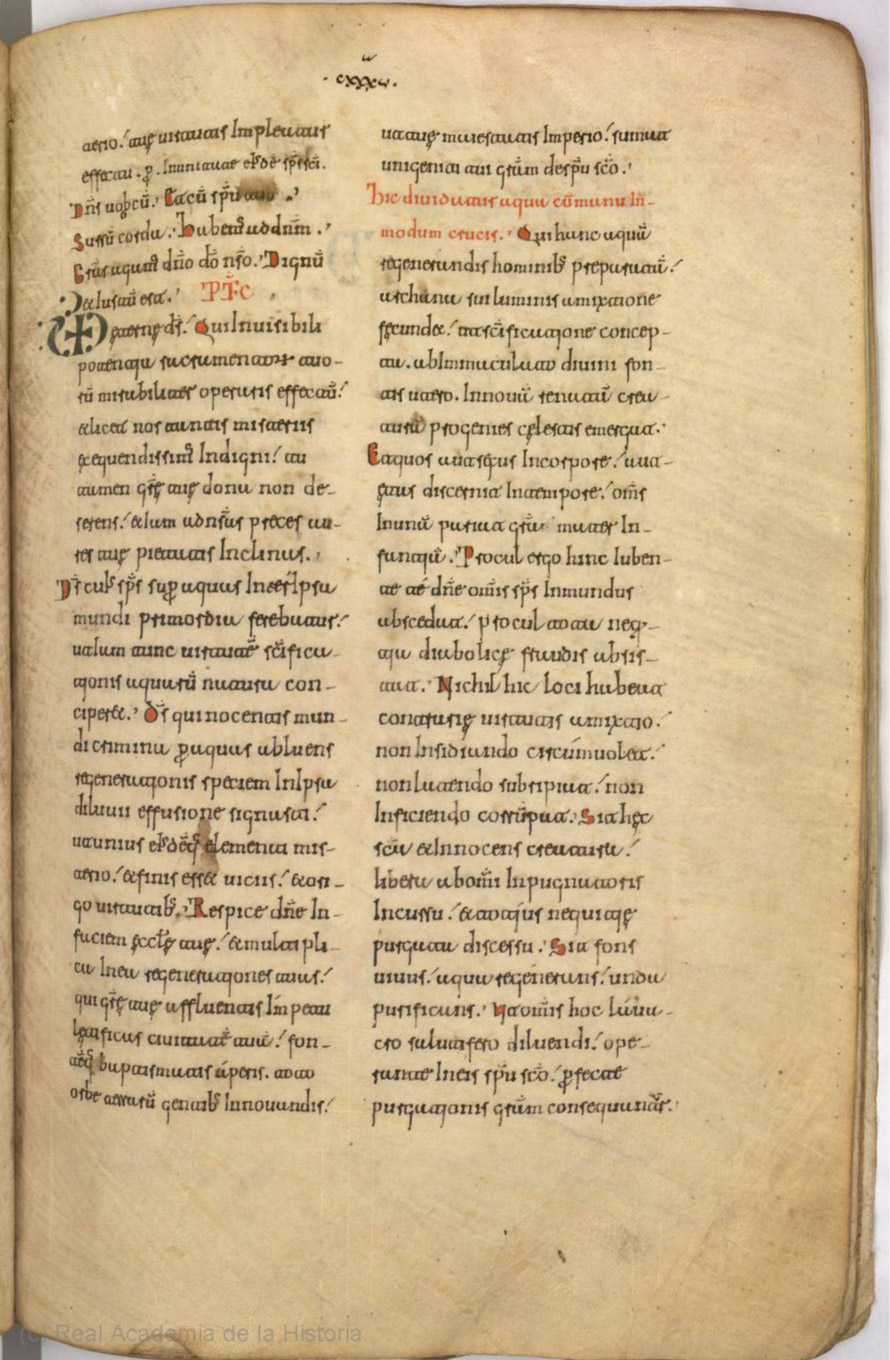 cxxxv.
terio. tuę uirtutis Impleatur
effectu. p. In unitate eiusdē sp̄s sc̄i.
Dn̄s uobcū. Et cū sp̄u tuo.
Sursū corda. Habem̄ ad dn̄m.
Grās agam̄ dn̄o dō nr̄o. Dignū
& Iustū est. PFC
VD Eterne ds̄. Qui Inuisibili
potentia sacramentorum tuo-
rū mirabiliter operaris effectū.
& licet nos tantis misteriis
exequendis sim̄ Indigni. tu
tamen grę tuę dona non de-
serens. & iam ad nr̄as preces au-
res tuę pietatis Inclinas.
Ds̄ cuiꝰ sp̄s sup aquas Inter Ipsa
mundi primordia ferebatur.
ut iam tunc uirtutē sc̄ifica-
tionis aquarū natura con-
ciperet. Ds̄ qui nocentis mun-
di crimina p aquas abluens
regenerationis speciem In Ipsa
diluuii effusione signasti.
ut unius eiusdēq elementi mis-
terio. & finis esset uiciis. & ori-
go uirtutib. Respice dn̄e In
faciem eccl̄ę tuę. & multipli-
ca In ea regenerationes tuas.
qui grę tuę affluentis Impetu
letificas ciuitatē tuā. fon-
tēq baptismatis aperis. toto
orbe terrarū gentib Innouandis.
ut tuę maiestatis Imperio. sumat
unigeniti tui grām de sp̄u sc̄o.
Hic diuidatur aqua cū manu In
modum crucis. Qui hanc aquā
regenerandis hominib preparatā.
archana sui luminis amixtione
fecundet. ut sc̄ificatione concep-
ta. ab Immaculato diuini fon-
tis utero. In nouā renata crea-
turā progenies cęlestis emergat.
Et quos aut sexus In corpore. aut
ętas discernit In tempore. om̄s
In unā pariat grā mater In-
funtiā. Procul ergo hinc Iuben-
te te dn̄e omnis sp̄s Inmundus
abscedat. procul tota neq-
tia diabolicę fraudis absis-
tat. Nichil hic loci habeat
contrarię uirtutis amixtio.
non Insidiando circūmuolet.
non latendo subripiat. non
Inficiendo corrūpat. Sit hęc
sc̄a & Innocens creatura.
libera ab om̄i Inpugnatoris
Incussu. & totius nequitię
purgata discessu. Sit fons
uiuus. aqua regenerans. unda
purificans. Ut om̄is hoc laua-
cro salutifero diluendi. ope-
rante In eis sp̄u sc̄o. pfectę
purgationis grām consequuntur.
(c) Real Academia de la Historia